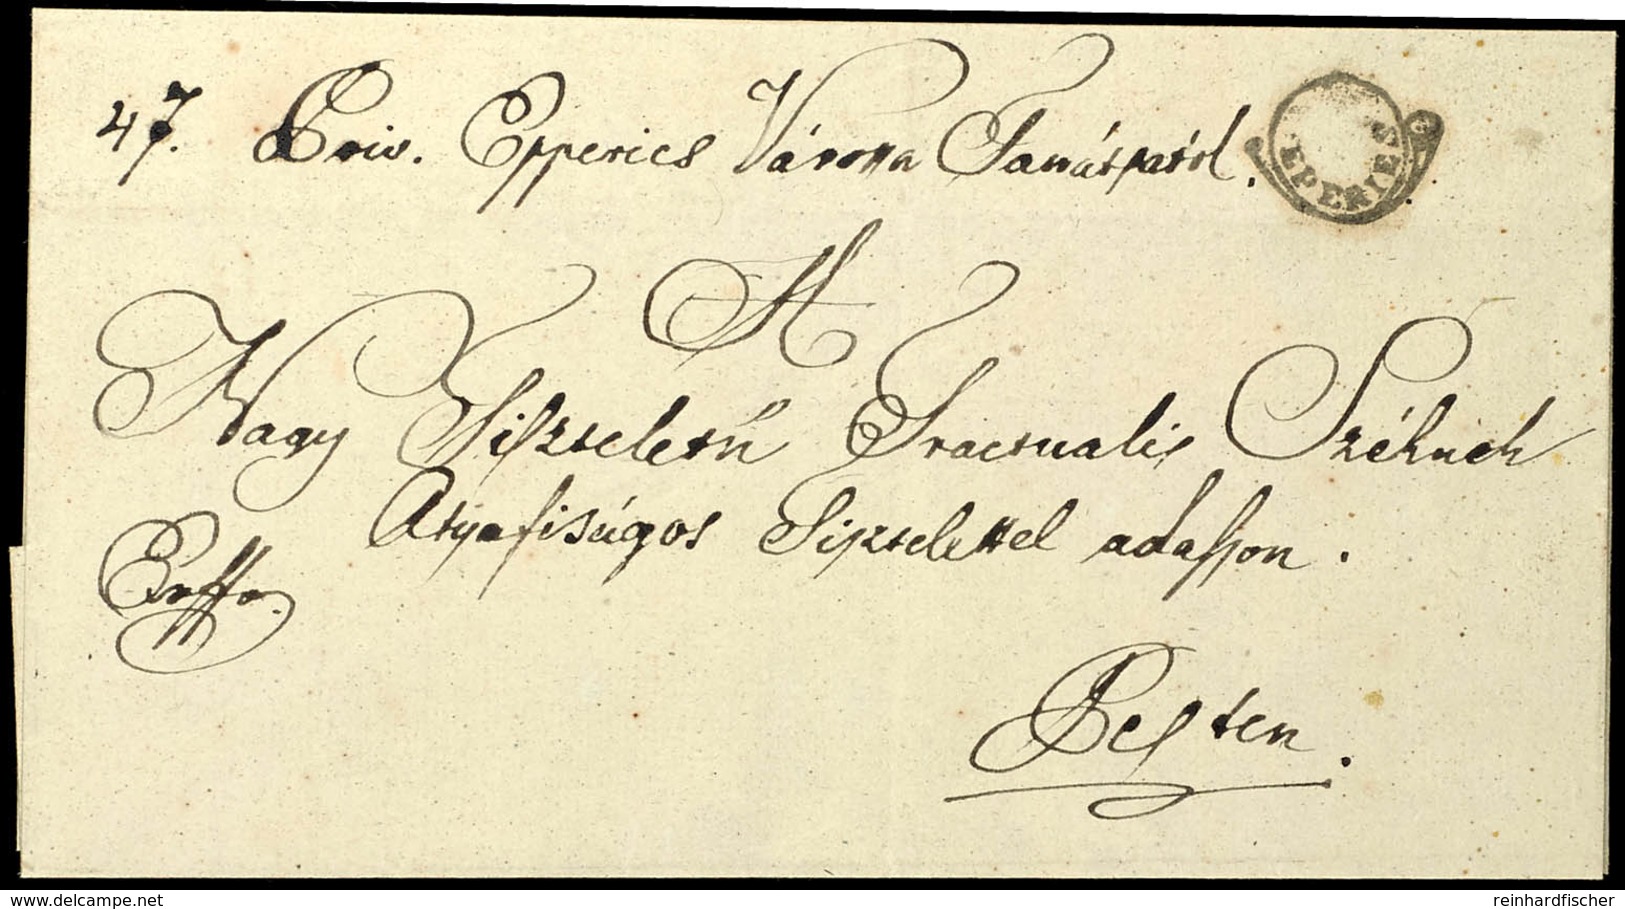 47. Priv. Epperies Városa Tanátsától.
EPERIES
A
Nagy Tiszteletű Tractualis Széknek
Atyafiságos Tisztelettel adasson.
Pesten.
www.delcampe.net
reinhardfischer